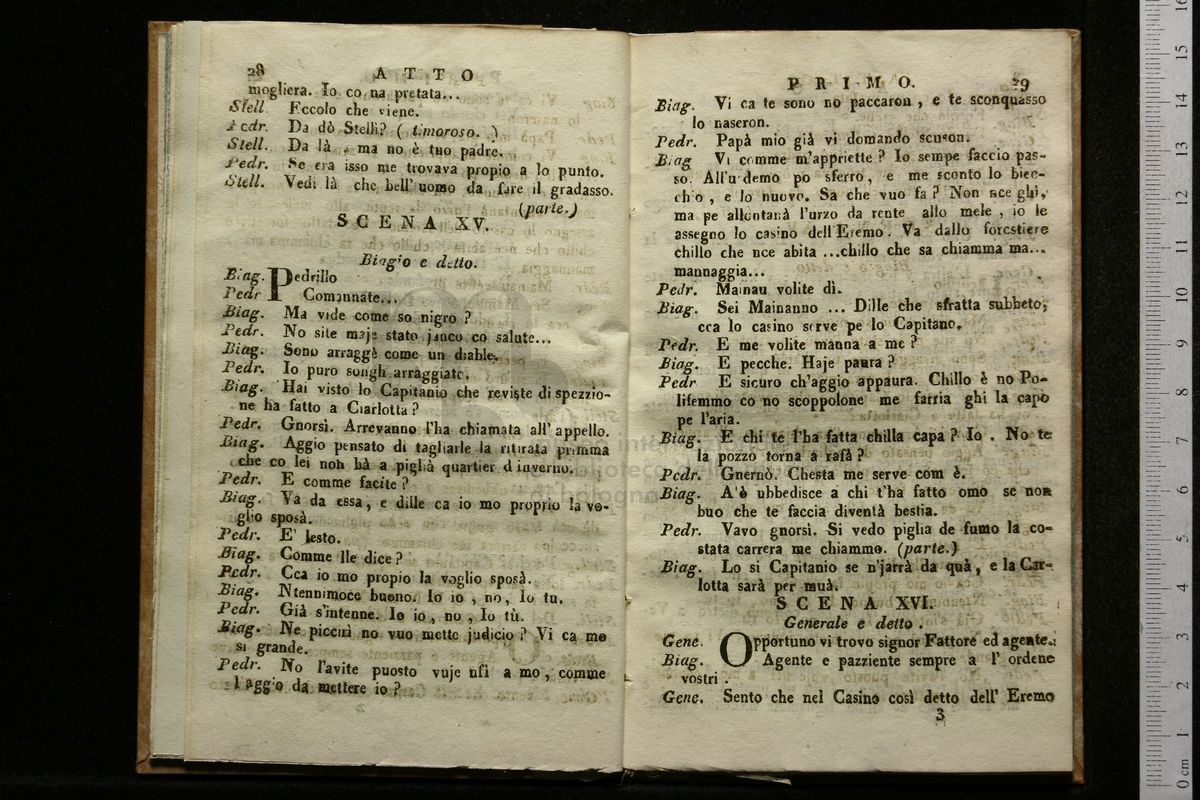 28 ATTO
mogliera. Io co na pretata...
Stell. Eccolo che viene.
Pedr. Da dò Stelli? ( timoroso. )
Stell. Da là , ma no è tuo padre.
Pedr. Se era isso me trovava propio a lo punto.
Stell. Vedi là che bell' uomo da fare il gradasso.
(parte.)
SCENA XV.
Biagio e detto.
Biag. Pedrillo
Pedr Comannate...
Biag. Ma vide come so nigro ?
Pedr. No site maje stato janco co salute...
Biag. Sono arraggè come un diable.
Pedr. Io puro songh arraggiate.
Biag. Hai visto lo Capitanio che reviste di spezzio-
ne ha fatto a Ciarlotta ?
Pedr. Gnorsì. Arrevanno l'ha chiamata all' appello.
Biag. Aggio pensato di tagliarle la ritirata primma
che co lei non hà a piglià quartier d inverno.
Pedr. E comme facite ?
Biag. Va da essa, e dille ca io mo proprio la vo-
glio sposà.
Pedr. E' lesto.
Biag. Comme lle dice ?
Pedr. Cca io mo propio la voglio sposà.
Biag. Ntennimoce bueno. Io io , no, lo tu.
Pedr. Già s'intenne. Io io , no , lo tù.
Biag. Ne piccirì no vuo mette judicio ? Vi ca mo
si grande.
Pedr. No l'avite puosto vuje nfì a mo , comme
l'aggio da mettere io ?
PRIMO. 29
Biag. Vi ca te sono no paccaron , e te sconquasso
lo naseron.
Pedr. Papà mio già vi domando scuson.
Biag Vi comme m'appriette ? Io sempe faccio pas-
so. All'u demo po sferro, e me sconto lo biec-
chio , e lo nuovo. Sa che vuo fa ? Non nce ghi,
ma pe allontanà l'urzo da rente allo mele , io le
assegno lo casino dell'Eremo. Va dallo forestiere
chillo che nce abita ...chillo che sa chiamma ma...
mannaggia...
Pedr. Mainau volite dì.
Biag. Sei Mainanno ... Dille che sfratta subbeto,
cca lo casino serve pe lo Capitano.
Pedr. E me volite manna a me ?
Biag. E pecche. Haje paura ?
Pedr E sicuro ch'aggio appaura. Chillo è no Po-
lifemmo co no scoppolone me farria ghi la capo
pe l'aria.
Biag. E chi te l'ha fatta chilla capa ? Io . No te
la pozzo torna a rafà ?
Pedr. Gnernò. Chesta me serve com è.
Biag. A'è ubbedisce a chi t'ha fatto omo se non
buo che te faccia diventà bestia.
Pedr. Vavo gnorsì. Si vedo piglia de fumo la co-
stata carrera me chiammo. (parte.)
Biag. Lo si Capitanio se n'jarrà da quà , e la Car-
lotta sarà per muà.
SCENA XVI.
Generale e detto .
Gene. Opportuno vi trovo signor Fattore ed agente.
Biag. Agente e pazziente sempre a l' ordene
vostri .
Gene. Sento che nel Casino così detto dell' Eremo
3